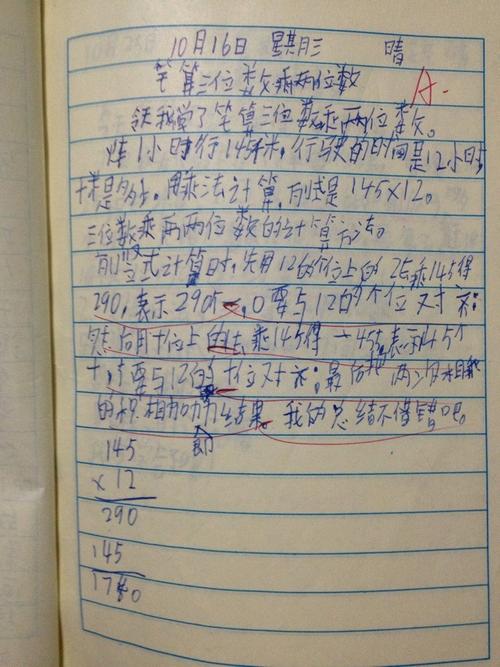 10月16日 星期三 晴
笔算三位数乘两位数
A-
我学了笔算三位数乘两位数。
1小时行145千米,行驶的时间是12小时,
千米是多少,用乘法计算,列式是145×12。
三位数乘两两位数的计算方法。
列竖式计算时,先用12的个位上的2去乘145得
290,表示290个一,0要与12的个位对齐;
然后用十位上的1去乘145得一45,表示145个
十,5要与12的十位对齐;最后把两次相乘
的积相加 结果。我的总结不错吧。
即
145
×12
290
145
1740